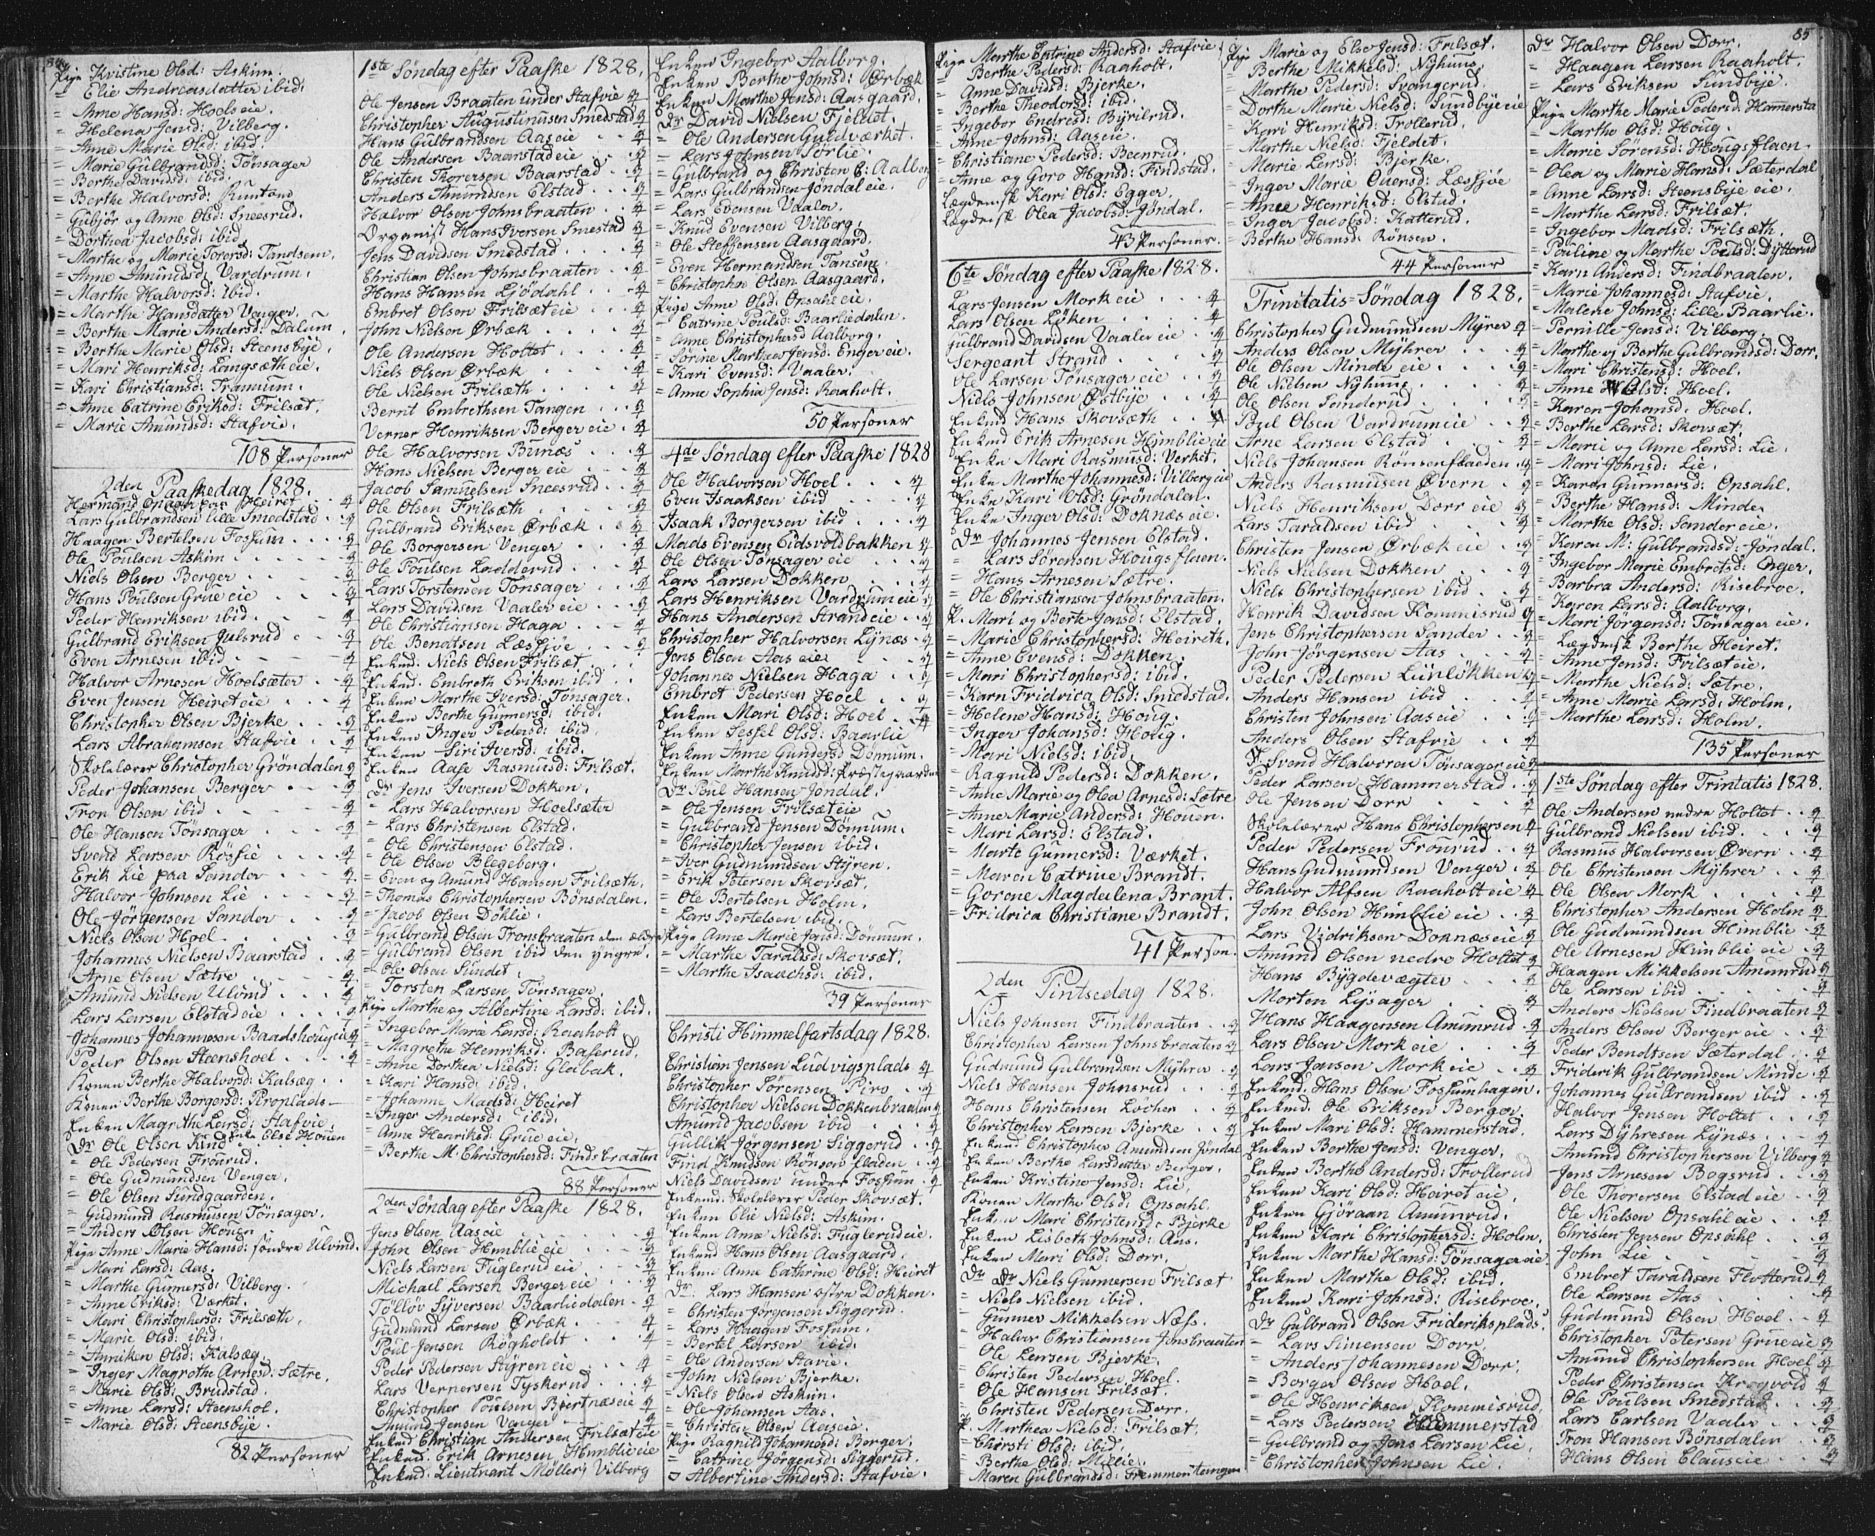 84
Pige Kristine Olsd: Askim.
= Elie Andreasdatter ibid.
= Anne Hansd: Hoelseie.
= Helena Jensd: Vilberg.
= Anne Marie Olsd: ibid.
= Marie Gulbrandsd: Tønsager
= Berthe Davidsd: ibid.
= Berthe Halvorsd: Rustand
= Gubjør og Anne Olsd: Sneesrud.
= Dorthea Jacobsd: ibid
= Marthe og Marie Torersd: Tandsem
= Anne Amundsd: Vardrum.
= Marthe Halvorsd: ibid.
= Marthe Hansdatter Venger.
= Berthe Marie Andersd: Dalum.
= Berthe Marie Olsd: Steensbye.
= Mari Henriksd: Langsæth eie.
= Kari Christiansd: Tranum.
= Anne Catrine Eriksd: Frilsæt.
= Marie Amundsd: Stafvie.
108 Personer
2den Paaskedag 1828.
Lars Gulbrandsen lille Smedstad
Haagen Bertelsen Fossum
Ole Poulsen Askim
Niels Olsen Berger
Hans Poulsen Grue eie
Peder Henriksen ibid
Gulbrand Eriksen Julsrud
Even Arnesen ibid
Halvor Arnesen Hoelsæter
Even Jensen Heiret eie
Christopher Olsen Bjerke
Lars Abrahamsen Stafvie
Skolelærer Christopher Grøndalen
Peder Johansen Berger
Tron Olsen ibid
Ole Hansen Tønsager
Svend Larsen Røssie
Erik Lie paa Sander
Halvor Johnsen Lie
Ole Jørgensen Sander
Niels Olsen Hoel
Johannes Nielsen Baarstad
Arne Olsen Sætre
Amund Nielsen Ulvind
Lars Larsen Elstad eie
Johannes Johannesen Baadshoug eie
Peder Olsen Steenshoel
Konen Berthe Halvorsd: Kalsæg
Konen Berthe Borgersd: Piroplads
Enken Magrethe Larsd: Stafvie,
Dr Ole Olsen Kind
= Ole Pedersen Frourud.
= Ole Gudmundsen Venger.
= Ole Olsen Sundgaarden.
= Gudmund Rasmusen Tønsager.
= Anders Olsen Houer
Pige Anne Marie Hansd: søndre Ulvind.
= Mari Larsd: Aas.
= Marthe Gunnersd: Vilberg.
= Anne Eriksd: Værket.
= Mari Christophersd: Frilsæth.
= Marie Olsd: ibid.
= Anniken Olsd: Kalsæg.
= Inger Magrethe Arnesd: Sætre.
= Marie Olsd: Brudstad.
= Anne Larsd: Steenshol.
= Marie Olsd: Steensbye
82 Personer
1ste Søndag efter Paaske 1828.
Ole Jensen Braaten under Stafvie
Christopher Augustinusen Smedstad
Hans Gulbrandsen Aas eie
Ole Andersen Baarstad eie
Christen Thorersen Baarstad
Anders Amundsen Elstad
Halvor Olsen Johnsbraaten
Organist Hans Iversen Smestad
Jens Davidsen Smedstad
Christian Olsen Johnsbraaten
Hans Hansen Ljødahl
Embret Olsen Frilsæt eie
John Nielsen Ørbæk
Ole Andersen Holtet
Niels Olsen Ørbæk
Ole Nielsen Frilsæth
Bernt Embrethsen Tangen
Verner Henriksen Berger eie
Ole Halvorsen Bunæs
Hans Nielsen Berger eie
Jacob Samuelsen Sneesrud
Ole Olsen Frilsæth
Gulbrand Eriksen Ørbæk
Ole Borgersen Venger
Ole Poulsen Ladderud
Lars Torstensen Tønsager
Lars Davidsen Vaaler eie
Ole Christiansen Haga
Ole Bendtsen Læssjøe
Enkmd. Niels Olsen Frilsæt.
Enkmd. Embreth Eriksen ibid.
Enken Marthe Iversd: Tønsager.
Enken Berthe Gunnersd: ibid.
Enken Inger Pedersd: ibid.
Enken Siri Iversd: ibid.
Enken Aase Rasmusd: Frilsæt.
Dr Jens Iversen Dokken.
= Lars Halvorsen Hoelsæter
= Lars Christensen Elstad.
= Ole Christensen Elstad.
= Ole Olsen Blegeberg.
= Even og Amund Hansen Frilsæth.
= Thomas Christophersen Bønsdalen.
= Jacob Olsen Døhlie.
= Gulbrand Olsen Tronsbraaten den ældre
= Gulbrand Olsen ibid den yngre.
= Ole Olsen Sundet.
= Torsten Larsen Tønsager.
Pige Marthe og Albertine Larsd: ibid.
= Ingebor Marie Larsd: Raaholt
= Magrethe Henriksd: Baserud.
= Anne Dorthea Nielsd: Gloibak.
= Kari Hansd: ibid.
= Johanne Madsd: Heiret
= Inger Andersd: ibid.
= Anne Henriksd: Grue eie,
= Berthe M. Christophersd: Findsbraaten
88 Personer
2den Søndag efter Paaske 1828.
Jens Olsen Aas eie
John Olsen Himblie eie
Niels Larsen Fuglerud eie
Michael Larsen Berger eie
Tølløv Syversen Baarliedalen
Gudmund Larsen Ørbæk
Poul Jensen Røgholdt
Peder Pedersen Styren eie
Lars Vernersen Tyskerud
Christopher Poulsen Bjertnæs eie
Amund Jensen Venger
Enkmd Christian Andersen Frilsæt eie
Enkmd. Erik Arnesen Himblie eie
Enkmd. Lieutnant Møller, Vilberg
Enken Ingebor Aalborg.
Enken Berthe Johnsd: Ørbæk
Enken Marthe Jensd: Aasgaard.
Dr David Nielsen Fjeldet.
= Ole Andersen Guldværket.
= Lars Johnsen Sørlie.
= Gulbrand og Christen C: Aalborg
= Lars Gulbrandsen Jøndal eie.
= Lars Evensen Vaaler.
= Knud Evensen Vilberg.
= Ole Steffensen Aasgaard.
= Even Hermandsen Tansem.
= Christopher Olsen Aasgaard.
Pige Anne Olsd: Opsahl eie.
= Catrine Poulsd: Baarliedalen.
= Anne Christophersd Aalborg.
= Sørine Marthea Jensd: Enger eie.
= Kari Evensd: Vaaler.
= Anne Sophia Jensd: Raaholt.
50 Personer
4de Søndag efter Paaske 1828
Ole Halvorsen Hoel
Even Isaaksen ibid
Isaak Borgersen ibid
Mads Evensen Eidsvolsbakken
Ole Olsen Tønsager eie
Lars Larsen Dokken
Lars Henriksen Vardrum eie
Hans Andersen Strand eie
Christopher Halvorsen Lynæs
Jens Olsen Aas eie
Johannes Nielsen Haga
Embret Pedersen Hoel
Enken Mari Olsd: Hoel
Enken Sessel Olsd: Baarlie
Enken Anne Gundersd Dømum.
Enken Marthe Knudsd: Præstegaarden
Dr Poul Hansen Jøndal.
= Ole Jensen Frilsæt eie
= Gulbrand Jensen Dønnum.
= Christopher Jensen ibid.
= Iver Gudmundsen Styren.
= Erik Petersen Skovsæt.
= Ole Bertelsen Holm.
= Lars Bertelsen ibid.
Pige Anne Marie Jensd: Dønnum.
= Marthe Taraldsd: Skovsæt.
= Marthe Isaachsd: ibid.
39 Personer
Christi Himmelfartsdag 1828.
Christian Jensen Ludvigsplads
Christopher Sørensen Piro
Christopher Nielsen Dokkenbraaten
Amund Jacobsen ibid
Gullik Jørgensen Siggerud
Find Knudsen Rønsen fladen
Niels Davidsen under Fossum
Enkemd: Skolelærer Peder Skovsæt.
Enken Elie Nielsd: Askim.
Enken Ane Nielsd: Fuglerud eie.
Enkemd Hans Olsen Aasgaard.
Enken Anne Cathrine Olsd: Heiret
Dr: Lars Hansen østre Dokken.
= Christen Jørgensen Siggerud.
= Lars Haagen Fossum.
= Bertel Larsen ibid.
= Ole Andersen Stavie.
= John Nielsen Bjerke.
= Niels Olsen Askim.
= Ole Johansen Aas.
= Christen Olsen Aaseie.
Pige Ragnild Johannesd: Berger.
= Catrine Jørgensd: Siggerud.
= Albertine Andersd: Stafvie.
Pige Marthe Catrine Andersd: Stafvie.
= Berthe Pedersd: Raaholt.
= Anne Davidsd: Bjerke.
= Berthe Theodorsd: ibid.
= Ingebor Endresd: Byrilrud.
= Anne Johnsd: Aaseie.
= Christiane Pedersd: Beenrud.
= Anne og Goro Hansd: Findstad.
Lægdensk Kari Olsd: Egger.
Lægdensk Olea Jacobsd: Jøndal.
43 Personer.
6te Søndag efter Paaske 1828.
Lars Jensen Mork eie
Lars Olsen Løken
Gulbrand Davidsen Vaaler eie
Sergeant Strand
Ole Larsen Tønsager eie
Niels Johnsen Østbye
Enkmd Hans Skovsæth
Enkmd Erik Arnesen Himblie eie
Enke Mari Rasmusd: Værket.
Enke Marthe Johannesd: Vilberg eie
Enke Kari Olsd: Grøndalen.
Enke Inger Olsd: Doknæs eie.
Dr Johannes Jensen Elstad.
= Lars Sørensen Hougsflaen.
= Hans Arnesen Sætre.
= Ole Christiansen Johnsbraaten.
P. Mari og Berte Jensd: Elstad.
= Marie Christophersd: Heireth.
= Anne Evensd: Dokken.
= Mari Christophersd: ibid.
= Karn Fridrica Olsd: Smedstad.
= Helene Hansd: Houg.
= Inger Johansd: Houg.
= Mari Nielsd: ibid.
= Ragnild Pedersd: Dokken.
= Anne Marie og Olea Arnesd: Sætre
= Anne Marie Andersd: Houen.
= Mari Larsd: Elstad.
= Marte Gunnersd: Værket.
= Maren Catrine Brandt.
= Gorene Magdalena Brant.
= Fridrica Christiane Brandt.
41 Person.
2den Pintsedag 1828.
Niels Johnsen Findbraaten
Christopher Larsen Johnsbraaten
Gudmund Gulbrandsen Myhrer
Niels Hansen Johnsrud
Hans Christensen Løcher
Christopher Larsen Bjerke
Enkemd Christopher Amundsen Jøndal
Enken Berthe Larsdatter Berger.
Enken Kristine Jensd: Lie.
Konen Marthe Olsd: Opsahl.
Enken Mari Christensd: Bjerke
Enken Lisbeth Johnsd: Aas.
Enken Mari Olsd: Dorr.
Dr Niels Gunnersen Frilsæt
= Niels Nielsen ibid.
= Gunner Mikkelsen Næss.
= Halvor Christiansen Jonsbraaten
= Ole Larsen Bjerke.
= Christen Pedersen Hoel.
= Ole Hansen Frilsæt.
= Christen Pedersen Dorr.
P. Marthea Nielsd: Frilsæt.
= Chersti Olsd: ibid.
= Berthe Olsd: Mælie.
= Maren Gulbrandsd: Fremmen Tangen
Pige Marie og Else Jensd: Frilsæt.
= Berthe Mikkelsd: Nyhuus.
= Marthe Pedersd: Svangerud.
= Dorthe Marie Nielsd: Sundbye eie
= Kari Henriksd: Trollerud.
= Marthe Nielsd: Fjeldet.
= Marie Larsd: Bjerke.
= Inger Marie Evensd: Læssjøe
= Anne Henriksd: Elstad.
= Inger Jacobsd: Katterud.
= Berthe Hansd: Rønsen.
44 Personer
Trinitatis=Søndag 1828.
Christopher Gudmundsen Myrer
Anders Olsen Myhrer
Ole Olsen Minde eie
Ole Nielsen Nyhuus
Ole Olsen Sanderud
Poul Olsen Vardrum eie
Arne Larsen Elstad
Niels Johansen Rønsenfladen
Anders Rasmusen Øvern
Niels Henriksen Dorr eie
Lars Taraldsen ibid
Christen Jensen Ørbæk eie
Niels Nielsen Dokken
Niels Christophersen ibid
Henrik Davidsen Kommisrud
Jens Christophersen Sander
John Jørgensen Aas
Peder Pedersen Lundløkken
Anders Hansen ibid
Christen Johnsen Aas eie
Anders Olsen Stafvie
S. Svend Halvorsen Tønsager eie
Peder Larsen Hammerstad
Ole Jensen Dorr
Skolelærer Hans Christophersen
Peder Pedersen Frourud
Hans Gudmundsen Venger
Halvor Alfsen Raaholt eie
John Olsen Himblie eie
Lars Vidriksen Doknæs eie
Amund Olsen nedre Holtet
Hans Bygdevægter
Morten Lysager
Hans Haagensen Amunrud
Lars Olsen Mork eie
Lars Jansen Mork eie
Enkmd. Hans Olsen Fossumhagen.
Enkmd. Ole Eriksen Berger.
Enken Mari Olsd: Hammerstad.
Enken Berthe Jensd: Venger.
Enken Berthe Andersd: Trollerud
Enken Kari Olsd: Heiret eie.
Enken Gjøraan Amunrud.
Enken Kari Christophersd: Holm.
Enken Marthe Hansd: Tønsager eie.
Enken Marthe Olsd: ibid.
Enken Kari Johnsd: Risebroe.
Dr Gulbrand Olsen Frideriksplads.
= Lars Simensen Dorr.
= Anders Johannesen Dorr.
= Borger Olsen Hoel.
= Ole Henriksen Kommisrud.
= Lars Pedersen Hammerstad
= Gulbrand og Jens Larsen Lie.
= Christopher Johnsen Lie.
85
Dr Halvor Olsen Dorr.
= Haagen Larsen Raaholt.
= Lars Eriksen Sundbye.
Pige Marthe Marie Pedersd: Hamersta
= Marthe Olsd: Houg.
= Marie Sørensd: Hougsflaen.
= Olea og Marie Hansd: Sæterdal
= Anne Larsd: Steensbye eie.
= Marthe Larsd: Frilsæt.
= Ingebor Madsd: Frilsæth.
= Pauline og Marthe Poulsd: Dytterud
= Karn Andersd: Findbraaten.
= Marie Johannesd: Stafvie.
= Malene Johnsd: Lille Baarlie.
= Pernille Jensd: Vilberg.
= Marthe og Berthe Gulbrandsd: Dorr.
= Mari Christensd: Hoel.
= Anne Olsd: Hoel.
= Karen Johansd: Hoel.
= Berthe Larsd: Skovsæt.
= Marie og Anne Larsd: Lie.
= Mari Johnsd: Lie.
= Karen Gunnersd: Opsahl.
= Berthe Hansd: Minde
= Marthe Olsd: Sander eie.
= Karen M: Gulbrandsd: Jøndal.
= Ingebor Marie Embretsd: Enger.
= Barbra Andersd: Risebroe.
= Karen Larsd: Aalborg.
= Mari Jørgensd: Tønsager eie.
Lægdensk Berthe Heiret.
= Anne Jensd: Frilsæt eie.
= Marthe Nielsd: Sætre.
= Anne Marie Larsd: Holm.
= Marthe Larsd: Holm.
135 Personer
1ste Søndag efter Trinitatis 1828.
Ole Andersen nedre Holtet
Gulbrand Nielsen ibid
Rasmus Halvorsen Øvern
Ole Christensen Myhrer
Ole Olsen Mork
Christopher Andersen Holm
Ole Gudmundsen Himblie
Ole Arnesen Himblie eie
Haagen Mikkelsen Amunrud
Ole Larsen ibid
Anders Nielsen Findbraaten
Anders Olsen Berger eie
Peder Bendtsen Sæterdal
Friderik Gulbrandsen Minde
Johannes Gulbrandsen ibid
Halvor Jensen Holtet
Lars Dyhresen Lynæs
Amund Christophersen Vilberg
Jens Arnesen Bogsrud
Ole Thorersen Elstad eie
Ole Nielsen Opsahl eie
Christen Jensen Opsahl
John Lie
Embret Taraldsen Flotterud
Ole Larsen Aas
Gudmund Olsen Hoel
Christopher Petersen Grue eie
Amund Christophersen Hoel
Peder Christensen Krogvold
Ole Poulsen Smedstad
Lars Carlsen Vaaler
Tron Hansen Bønsdalen
Hans Olsen Clauseie